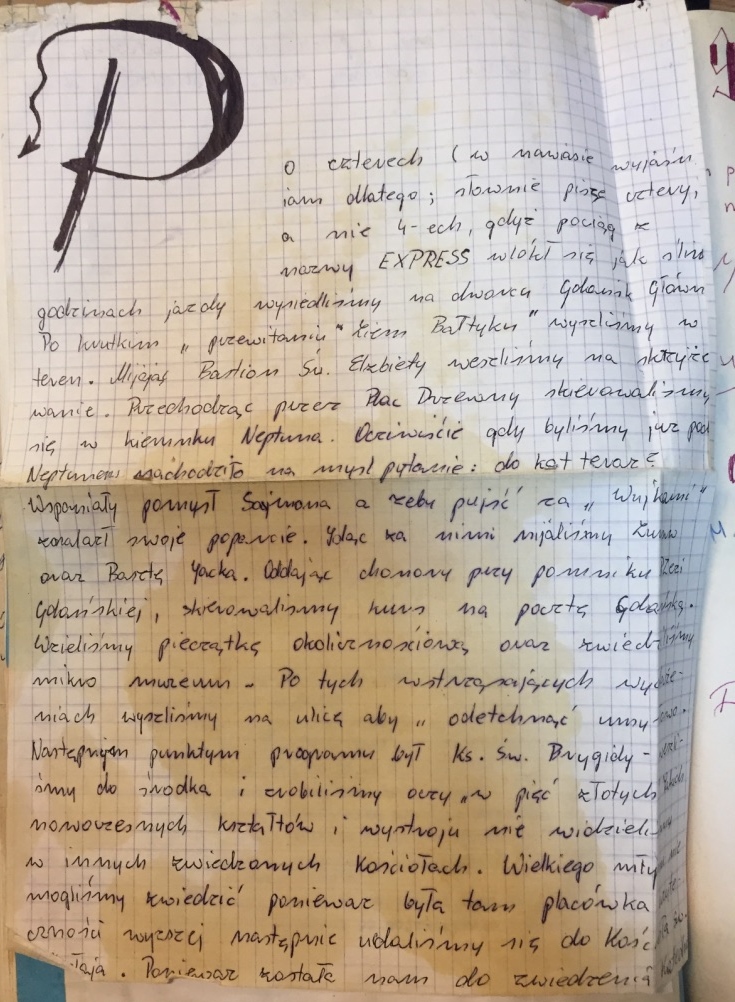 P
o czterech ( w nawiasie wyjaśn
iam dlatego; słownie piszę cztery,
a nie 4-ech, gdyż pociąg z
nazwy EXPRESS wlókł się jak
godzinach jazdy wysiedliśmy na dworcu Gdańsk Główn
Po krutkim „ przewitaniu " Bałtyku" wyszliśmy w
teren. Mijając Bastion Św. Elżbiety weszliśmy na skrzyżo
wanie. Przechodząc przez Plac Drzewny skierowaliśmy
się w kierunku Neptuna. Oczwiście gdy byliśmy już pod
Neptunem nachodziło na myśl pytanie: do kąt teraz?
Wspaniały pomysł Sajmona a żeby pujść za „ Wujkami"
znalazł swoje poparcie. Idąc za nimi mijaliśmy Żuraw
oraz Basztę Jacka. Oddając chonory przy pomniku
Gdańskiej, skierowaliśmy kurs na pocztę Gdańską.
Wzieliśmy pieczątkę okolicznościową oraz zwiedziliśmy
mikro muzeum. Po tych wstrząsających
niach wyszliśmy na ulicę aby „ odetchnąć
Następnym punktym programu był Ks. Św. Brygidy -
śmy do środka i zrobiliśmy oczy „w pięć złotych
nowoczesnych kształtów i wystroju nie widzieli
w innych zwiedzanych kościołach. Wielkiego mły
mogliśmy zwiedzić ponieważ była tam placówka
czności wyższej następnie udaliśmy się do Kość
Ponieważ została nam do zwiedzenia